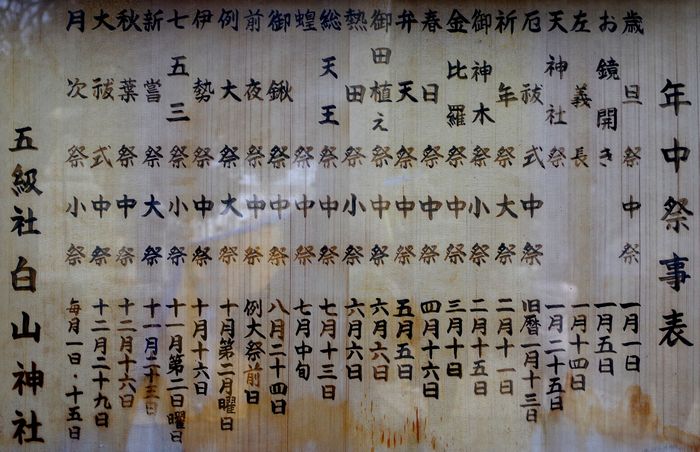 年中祭事表
歳旦祭 中祭 一月一日
お鏡開き 一月五日
左義長 一月十四日
天神社祭 一月二十五日
厄祓式 中祭 旧暦一月十三日
祈年祭 大祭 二月十一日
御神木祭 小祭 二月十五日
金比羅祭 中祭 三月十日
春日祭 中祭 四月十六日
弁天祭 中祭 五月五日
御田植え祭 中祭 六月六日
熱田祭 小祭 六月六日
総天王祭 中祭 七月十三日
蝗祭 中祭 七月中旬
御鍬祭 中祭 八月二十四日
前夜祭 中祭 例大祭前日
例大祭 大祭 十月第二月曜日
伊勢祭 中祭 十月十六日
七五三祭 小祭 十一月第二日曜日
新嘗祭 大祭 十一月二十三日
秋葉祭 中祭 十二月十六日
大祓式 中祭 十二月二十九日
月次祭 小祭 毎月一日・十五日
五級社白山神社